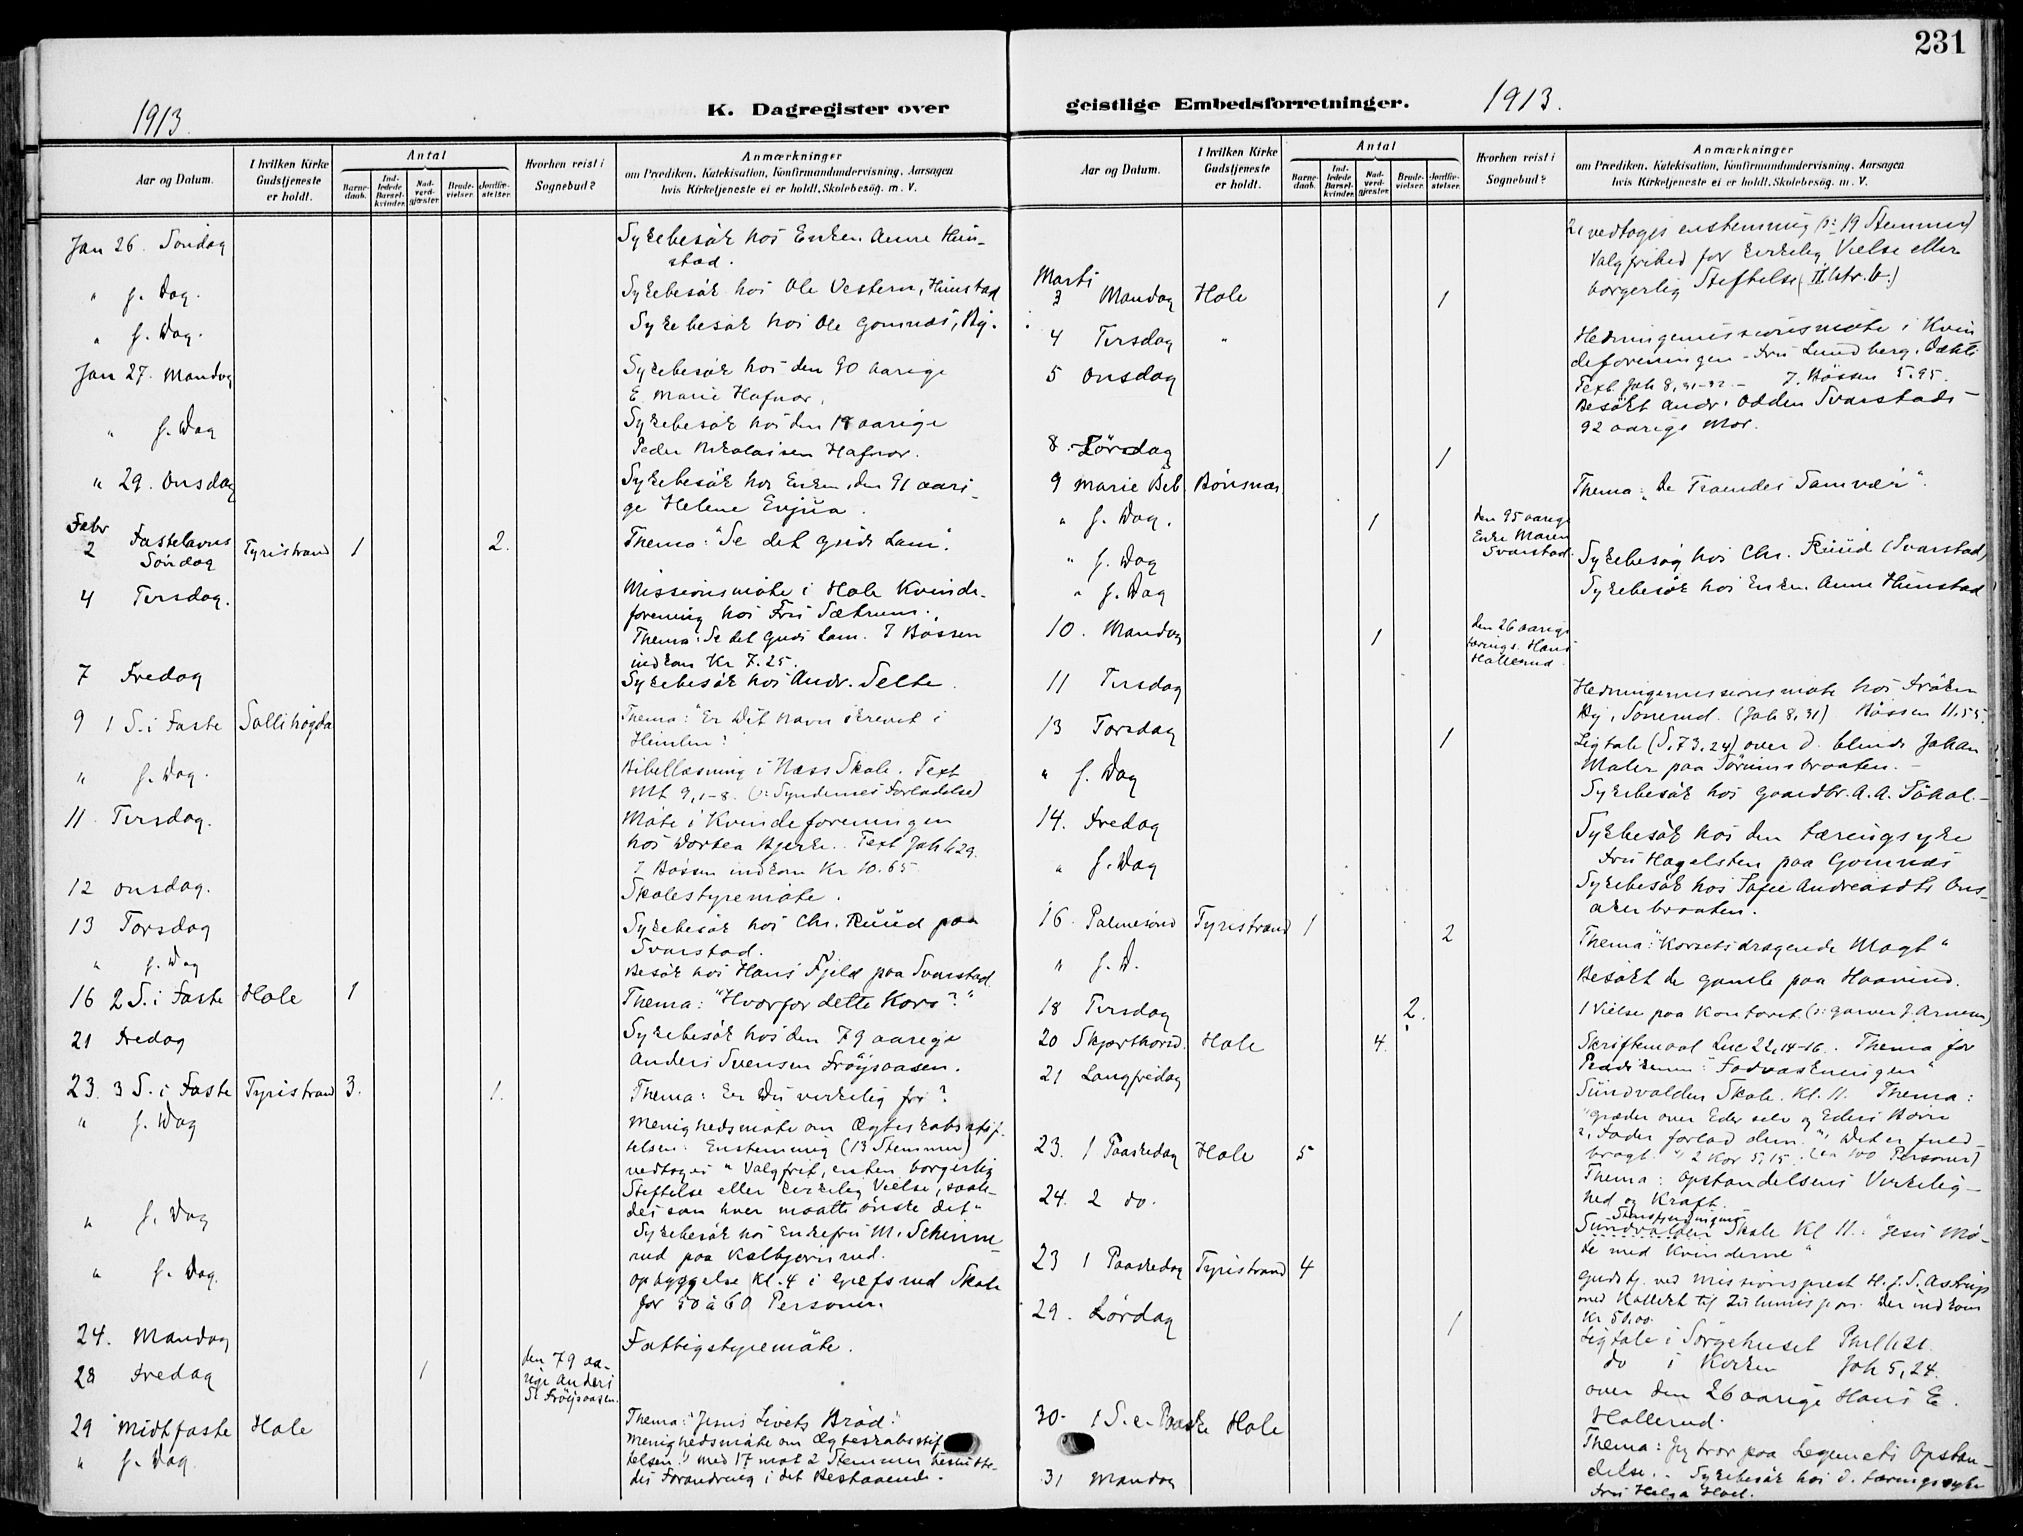 231
1913.
K. Dagregister over
geistlige Embedsforretninger.
1913.
Aar og Datum.
I hvilken Kirke Gudstjeneste er holdt.
Antal
Barnedaab.
Indledede Barselkvinder.
Nadverdgjæster.
Brudevielser.
Jordfæstelser.
Hvorhen reist i Sognebud?
Anmærkninger
om Prædiken, Katekisation, Konfirmandundervisning, Aarsagen
hvis Kirketjeneste ei er holdt, Skolebesøg, m. V.
Jan 26. Söndag
Sykebesök hos Enken Anne Hun-
stad.
" s. Dag.
Sykebesök hos Ole Vestern, Hunstad
" s. Dag.
Sykebesök hos Ole Gomnæs, By.
Jan 27. Mandag
Sykebesök hos den 90 aarige
E. Marie Hafnor.
" s. Dag
Sykebesök hos den 18 aarige
Peder Nikolaisen Hafnor.
" 29. Onsdag
Sykebesök hos Enken, den 91 aari-
ge Helene
Febr
2 Fastelavns Söndag
Tyristrand
1
2.
Thema: "Se det Guds Lam".
4 Tirsdag.
Missionsmöte i Hole Kvinde-
forening hos Fru Sætrum.
Thema: Se det Guds Lam. I Bössen
indkom Kr 7.25.
7 Fredag
Sykebesök hos Andr. Selte.
9 1 S. i Faste
Sollihøgda
Thema: "Er Dit Navn skrevet i
Himlen?
" s. Dag.
Bibellæsning i Næss Skole. Text
Mt 9,1-8. (: Syndernes Forladelse)
11. Tirsdag.
Möte i Kvindeforeningen
hos Dortea Bjerke. Text Joh 1.29.
I Bössen indkom Kr 10.65
12 Onsdag.
Skolestyremöte.
13 Torsdag
Sykebesök hos Chr. Ruud paa
Svarstad.
" s. Dag
Besök hos Hans Fjeld paa Svarstad
16 2 S. i Faste
Hole
1
Thema: "Hvorfor dette Kors?"
21 Fredag
Sykebesök hos den 79 aarige
Anders Svensen Fröysaasen.
23. 3 S. i Faste
Tyristrand
3.
1.
Thema: Er Du virkelig fri?
" s. Dag
Menighedsmöte om Ægteskabsstif-
telsen: Enstemmig (13 Stemmer)
vedtoges "Valgfrit, enten borgerlig
Stiftelse eller kirkelig Vielse, saale-
des som hver maatte önske det"
" s. Dag
Sykebesök hos Enkefru M.
rud paa
" s. Dag.
Opbyggelse Kl. 4 i Gjefsrud Skole
for 50 à 60 Personer.
24. Mandag
Fattigstyremöte.
28 Fredag
1
den 79 aa-
rige Anders
S. Fröysaasen.
29 Midtfaste
Hole
Thema: "Jesus Livets Bröd."
" s. Dag.
Menighedsmöte om Ægteskabsstif
telsen: Med 17 mot 2 Stemmer beslutte-
des Forandring i det Bestaaende.
Aar og Datum.
I hvilken Kirke Gudstjeneste er holdt.
Antal
Barnedaab.
Indledede Barselkvinder.
Nadverdgjæster.
Brudevielser.
Jordfæstelser.
Hvorhen reist i Sognebud?
Anmærkninger
om Prædiken, Katekisation, Konfirmandundervisning, Aarsagen
hvis Kirketjeneste ei er holdt, Skolebesøg, m. V.
2, vedtoges enstemmig (: 19 Stemmer)
Valgfrihed for kirkelig Vielse eller
borgerlig Stiftelse (II litr. b.)
Marts
3 Mandag
Hole
1
4 Tirsdag
"
Hedningemissionsmöte i Kvin
deforeningen - Fru Lundberg,
Text Joh 8,31-32. - I Bössen 5.95.
5 Onsdag
Besökt Andr. Odden Svarstads
92 aarige Mor.
8. Lörsdag
1
9 Marie Beb.
Bönsnæs
Thema: "De Troendes Samvær".
" s. Dag.
1
den 95 aarige
Enke Maren
Svarstad.
" s. Dag
Sykebesög hos Chr. Ruud (Svarstad)
" s. Dag
Sykebesök hos Enken Anne Hunstad
10. Mandag
1
den 26 aarige
Hans
Hallerud.
11 Tirsdag
Hedningemissionsmöte hos Fröken
By, Sonerud. (Joh 8,31) Bössen 11.55.
13 Torsdag
1
Ligtale (S. 73,24) over d. blinde Johan
Maler paa Sörumsbraaten.
" s. Dag
Sykebesök hos Gaardbr. A. A.
14. Fredag
Sykebesök hos den tæringsyke
Fru Hagelsten paa Gomnæs
" s. Dag
Sykebesök hos Andreasdtr Ons-
akerbraaten.
16. Palmesönd
Tyristrand
1
2
Thema: "Korsets dragende Magt"
" s. D.
Besökt de gamle paa Haavind.
18 Tirsdag
2.
1 Vielse paa Kontoret (: J. Arnesen)
20 Skjærthorsd.
Hole
4.
Skriftemaal Luc 22,14-16. Thema for
Prædikenen: "Fodvaskningen"
21 Langfredag
Sundvolden Skole. Kl. 11. Thema:
"Græder over Eder selv og Eders Börn
2, Fader forlad dem." "Det er fuld-
bragt." 2 Kor 5,15. (ca 100 Personer)
23. 1 Paaskedag
Hole
5
Thema: Opstandelsens Virkelig-
hed og Kraft.
24. 2 do.
Sundvolden Skole Kl 11: "Jesu Mö-
te med Kvinderne"
23 1 Paaskedag
Tyristrand
4
Gudstj. ved Missionsprest H. J. S. Astrup
med Kollekt til Zulumisjon. Der indkom
Kr 50.00.
29. Lördag
1
Ligtale i Sörgehuset Phil 1.21.
do i Kirken Joh 5,24.
over den 26 aarige Hans E.
Hallerud.
30. 1 S. e. Paaske
Hole
Thema: Jeg tror paa Legemets Opstan-
delse.
31 Mandag
Sykebesök hos d. tæringssyke
Fru Helga Hoel.